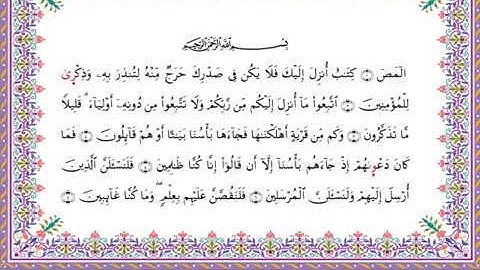 بِسْمِ اللَّهِ الرَّحْمَٰنِ الرَّحِيمِ
الٓمٓصٓ ۝ كِتَٰبٌ أُنزِلَ إِلَيْكَ فَلَا يَكُن فِى صَدْرِكَ حَرَجٌ مِّنْهُ لِتُنذِرَ بِهِۦ وَذِكْرَىٰ
لِلْمُؤْمِنِينَ ۝ ٱتَّبِعُوا۟ مَآ أُنزِلَ إِلَيْكُم مِّن رَّبِّكُمْ وَلَا تَتَّبِعُوا۟ مِن دُونِهِۦٓ أَوْلِيَآءَ ۗ قَلِيلًا
مَّا تَذَكَّرُونَ ۝ وَكَم مِّن قَرْيَةٍ أَهْلَكْنَٰهَا فَجَآءَهَا بَأْسُنَا بَيَٰتًا أَوْ هُمْ قَآئِلُونَ ۝ فَمَا
كَانَ دَعْوَىٰهُمْ إِذْ جَآءَهُم بَأْسُنَآ إِلَّآ أَن قَالُوٓا۟ إِنَّا كُنَّا ظَٰلِمِينَ ۝ فَلَنَسْـَٔلَنَّ ٱلَّذِينَ
أُرْسِلَ إِلَيْهِمْ وَلَنَسْـَٔلَنَّ ٱلْمُرْسَلِينَ ۝ فَلَنَقُصَّنَّ عَلَيْهِم بِعِلْمٍ ۖ وَمَا كُنَّا غَآئِبِينَ ۝